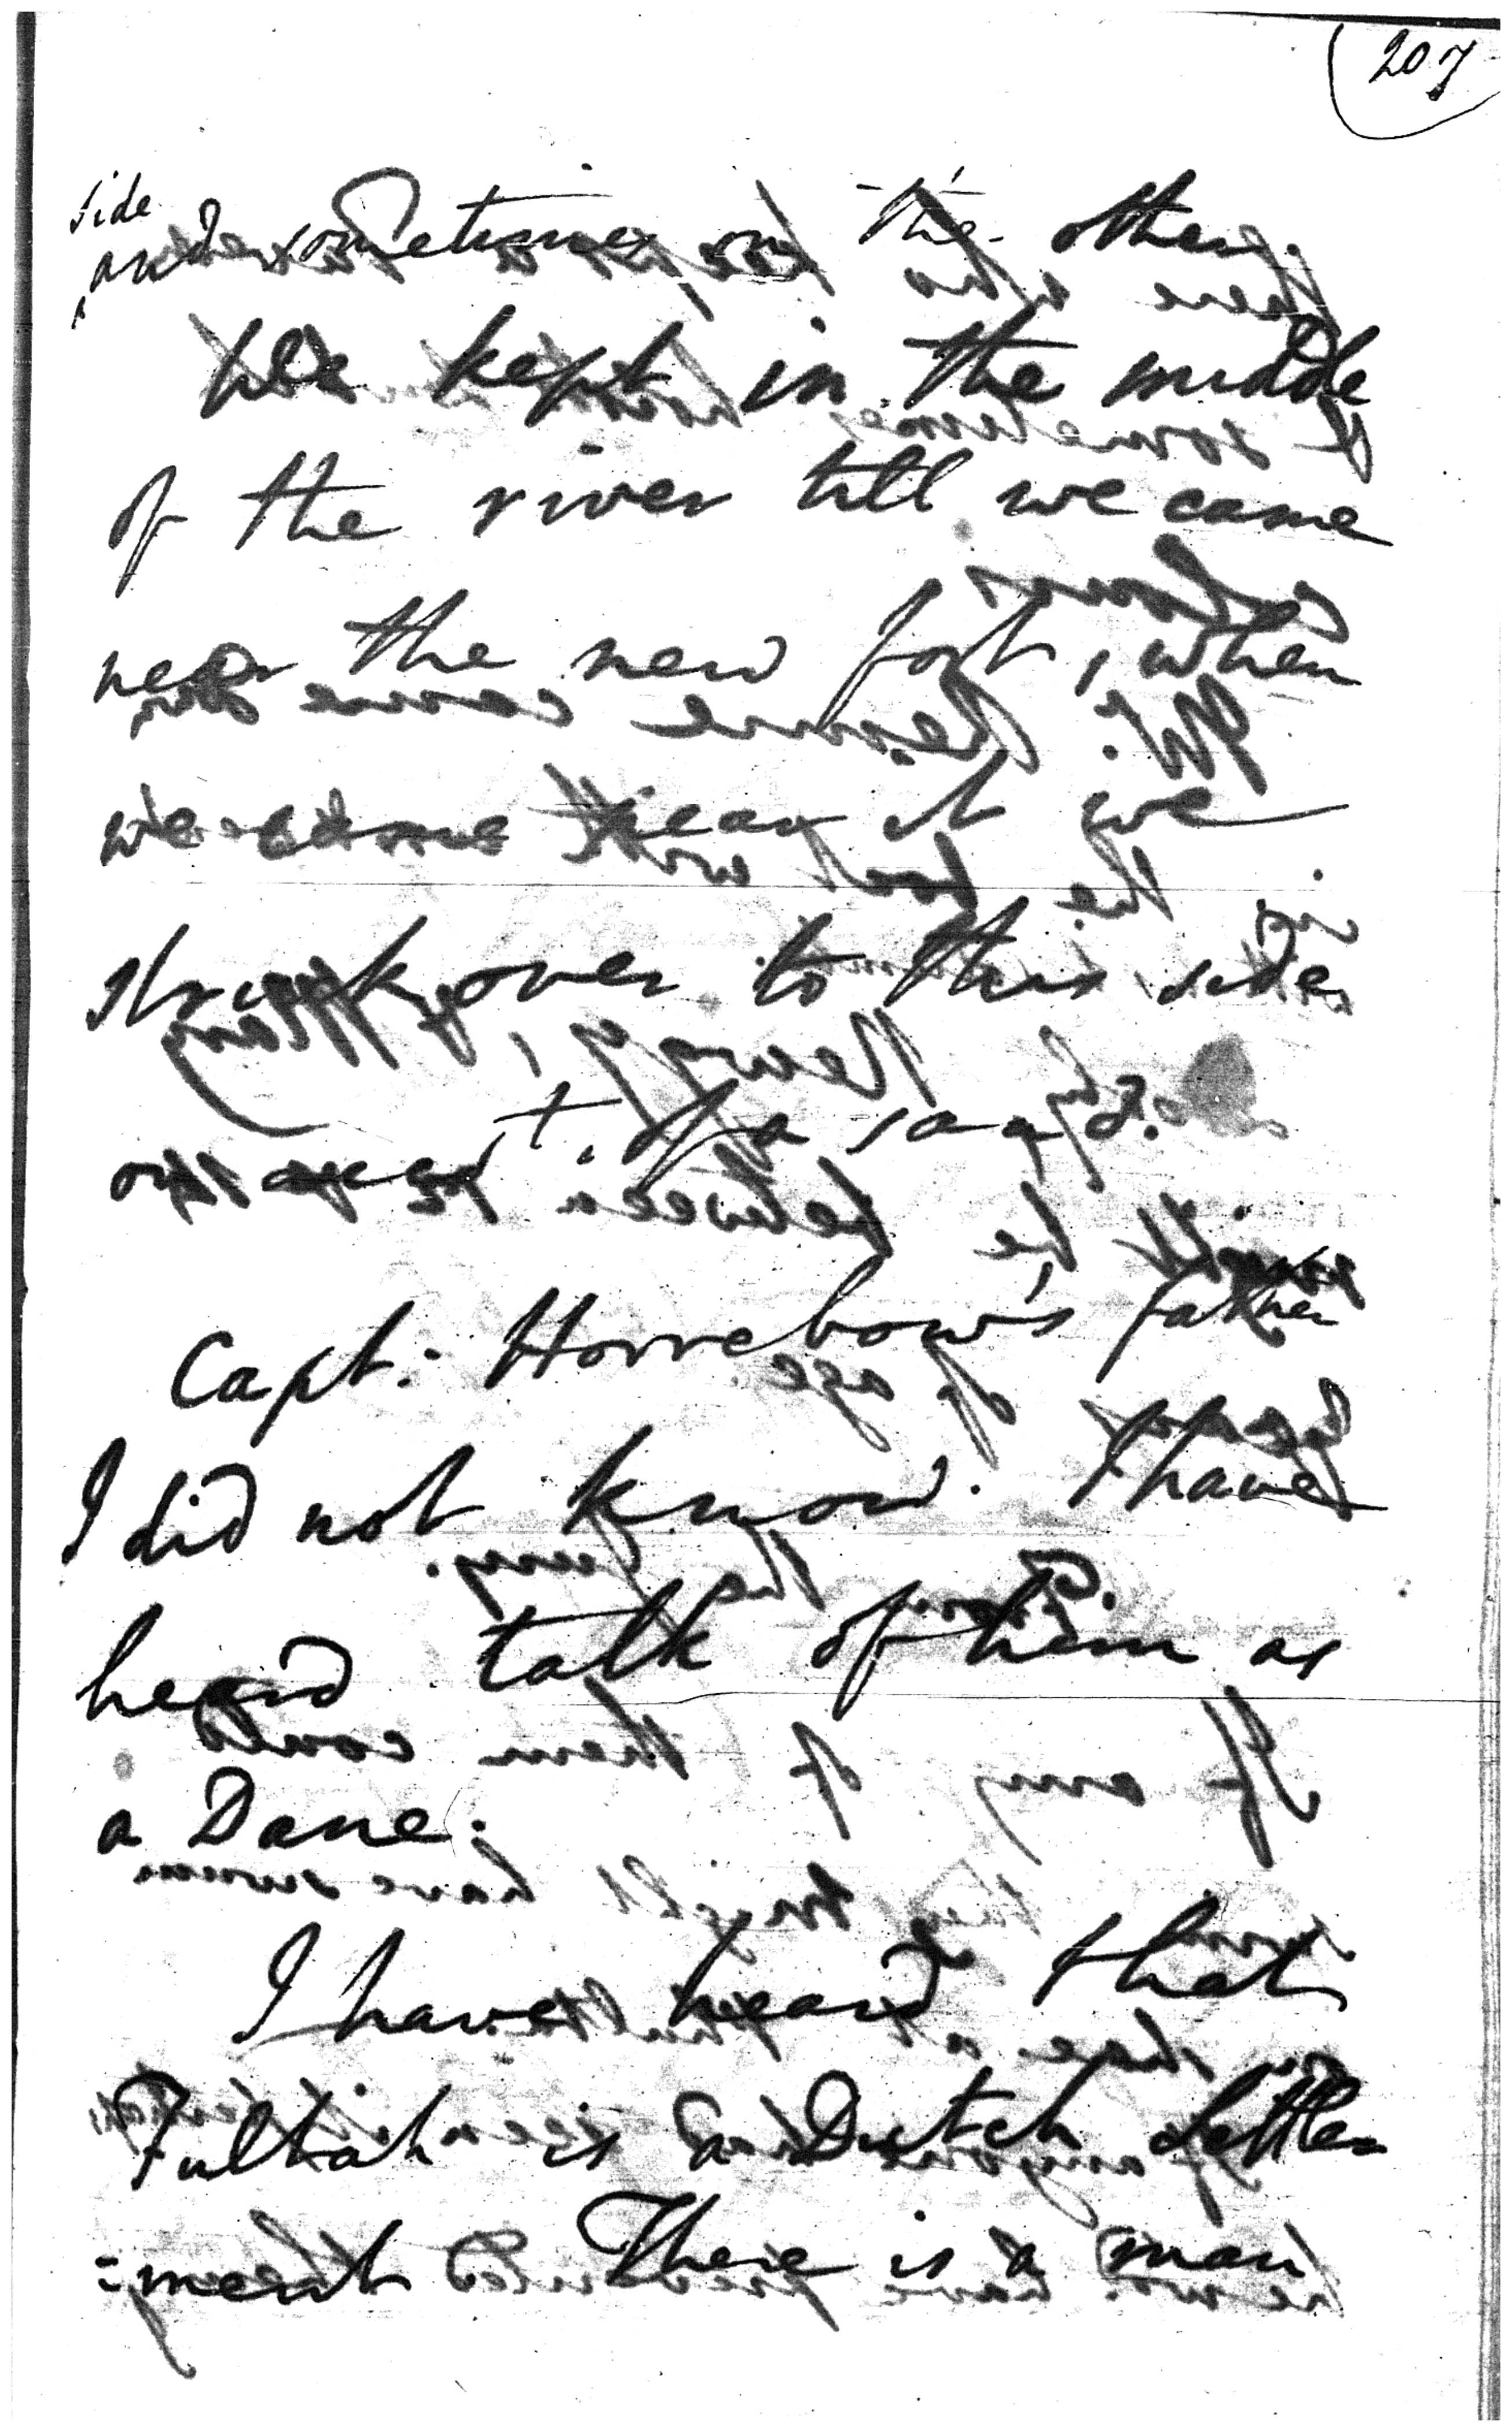 207
side
and sometimes on the other.
We kept in the middle
of the river till we came
near the new fort, when
we came near it we
struck over to this side
Capt: Horrebow's father
I did not know. I have
heard talk of him as
a Dane.
I have heard that
Fultah is a Dutch Settle=
=ment There is a man